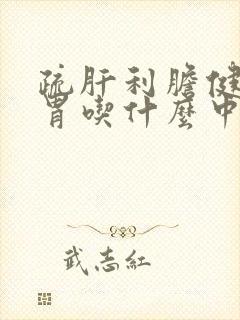 疏肝利膽健
胃喫什麼中
武志紅